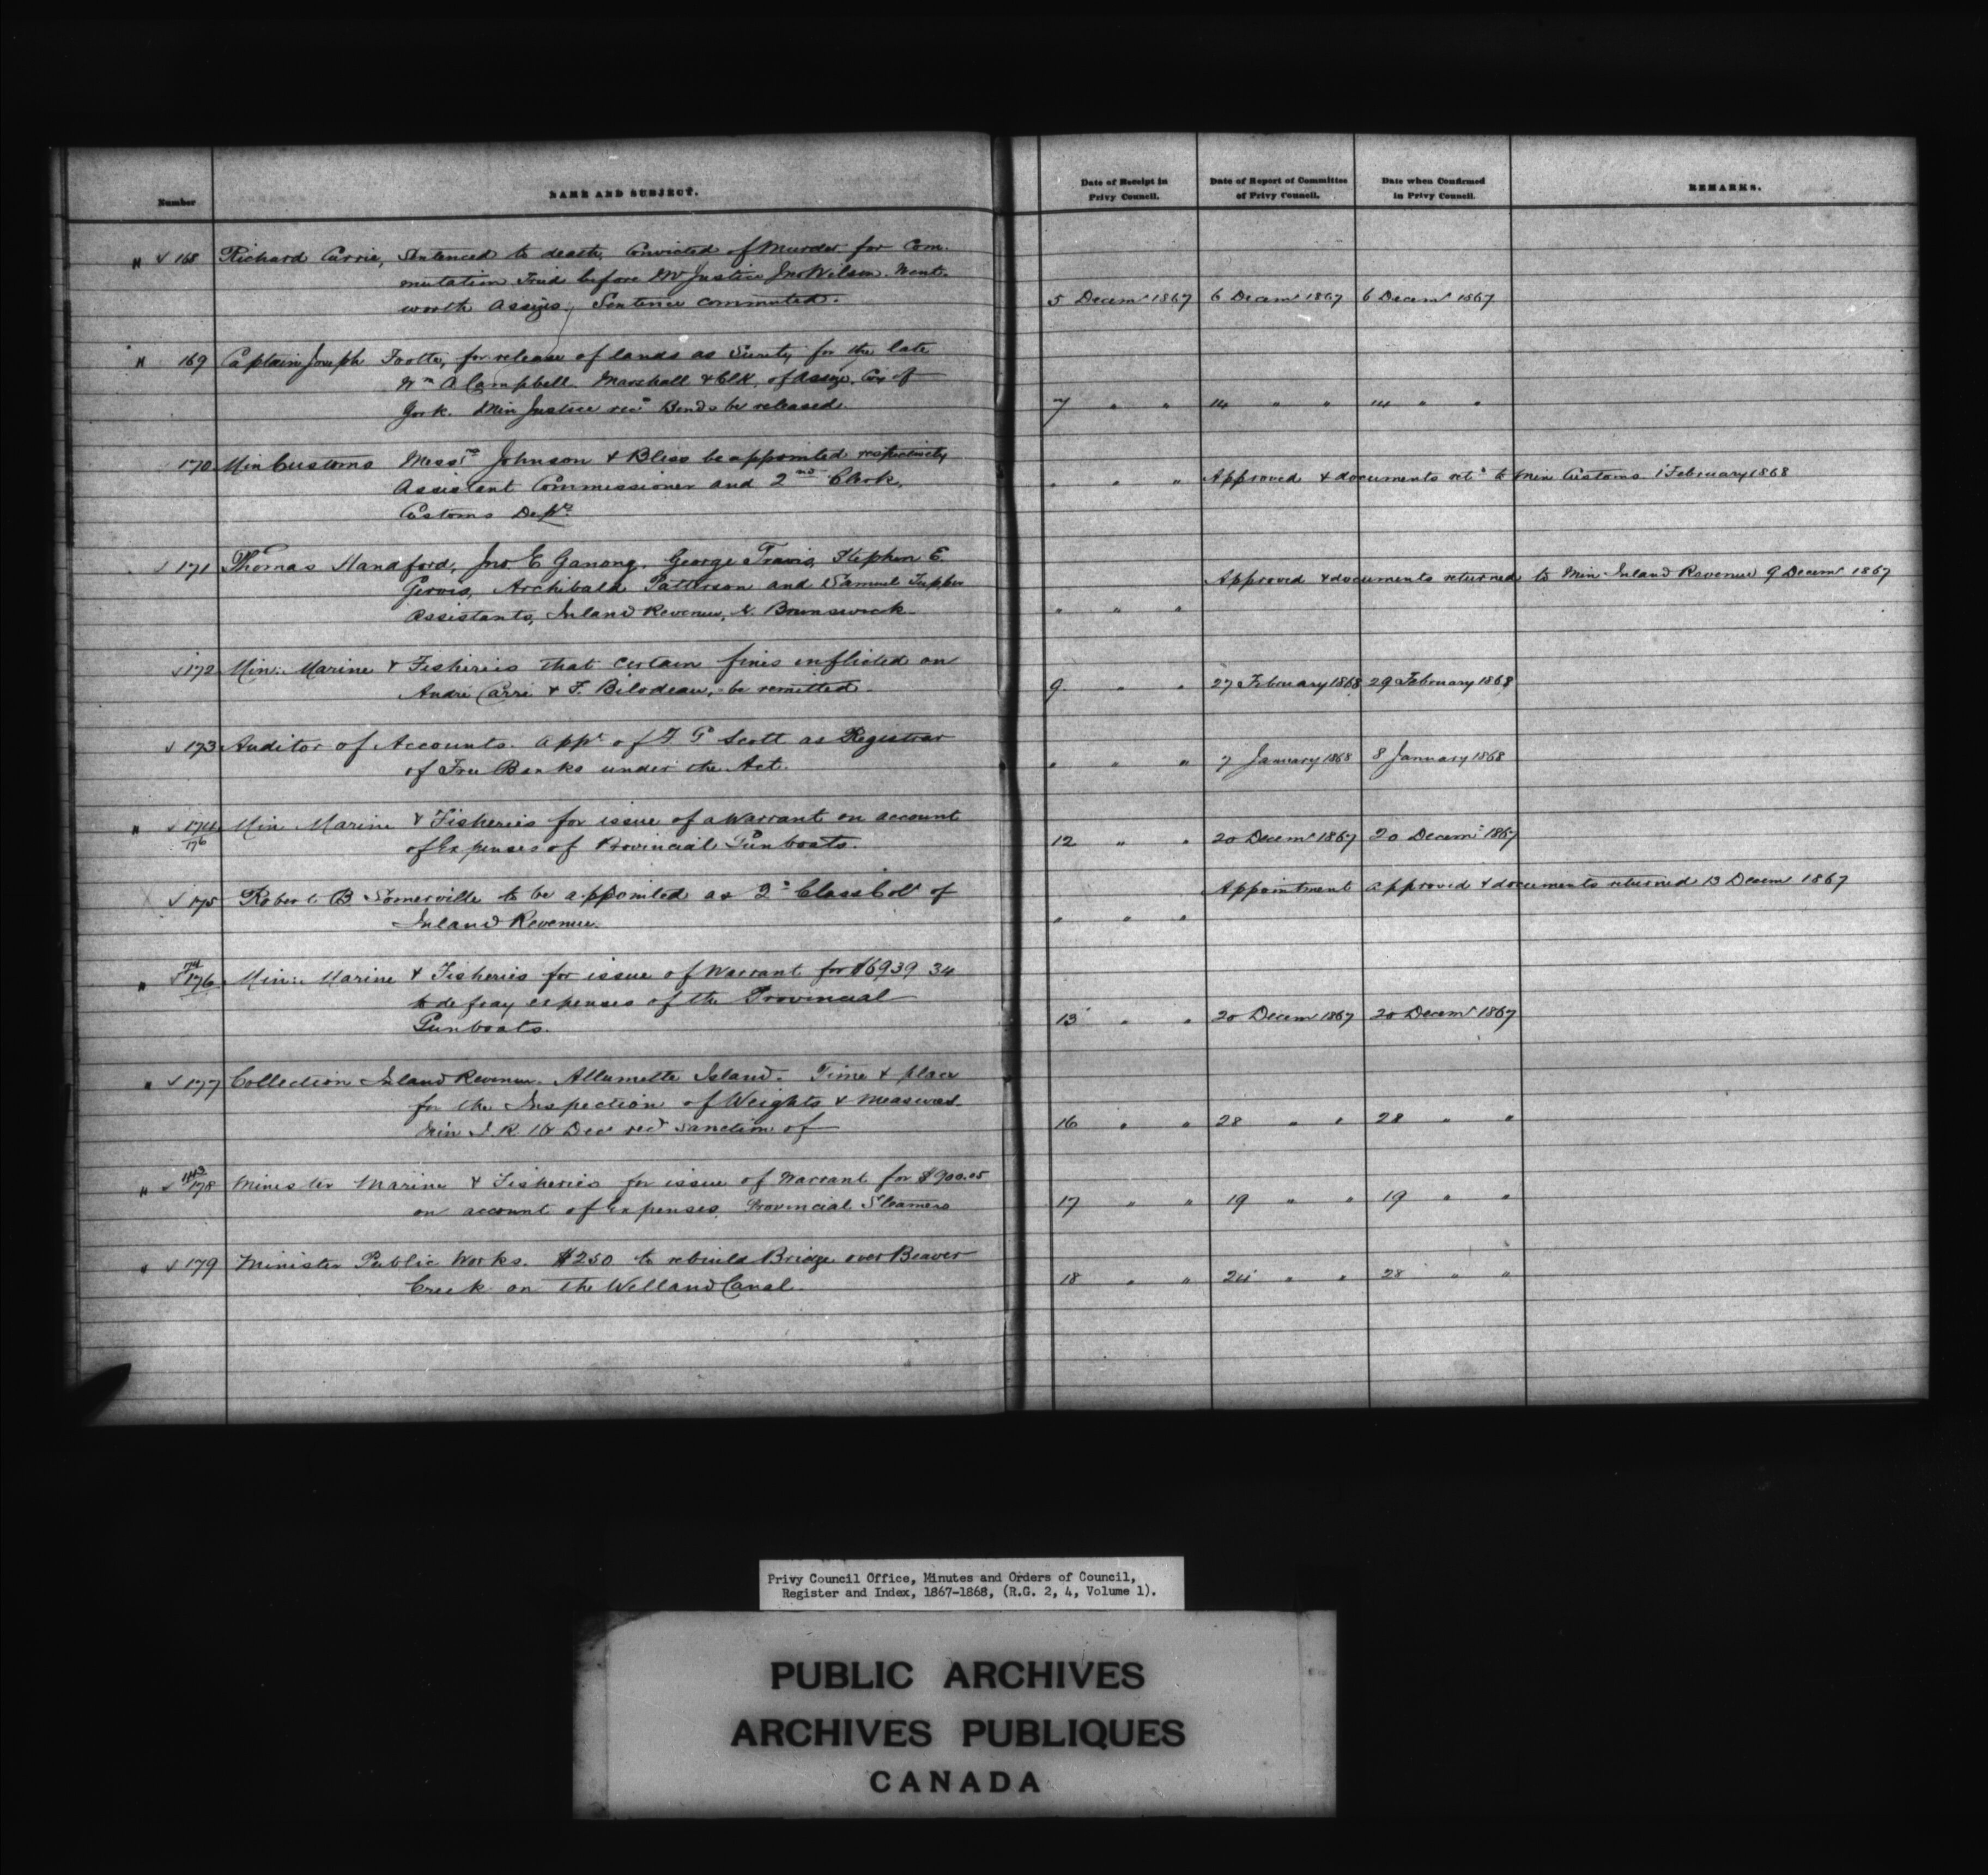 Number NAME AND SUBJECT. Date of Receipt in Privy Council. Date of Report of Committee of Privy Council. Date when Confirmed in Privy Council. REMARKS.
" √ 168 Richard Carrie, Sentenced to death, Convicted of Murder for Com-
mutation Tried before Mr Justice Jno Wilson. Went-
worth Assizes, Sentence Commuted. 5 Decemr 1867 6 Decemr 1867 6 Decemr 1867
" 169 Captain Joseph Footte, for release of lands as Surety for the late
Wm A Campbell. Marshall & Clk, of Assize, Co: of
York. Min Justice recd Bonds be released. 7 " " 14 " " 14 " "
170 Min Customs Messrs Johnson & Bliss be appointed respectively
Assistant Commissioner and 2nd Clerk, " " " Approved & documents retd to Min Customs. 1 February 1868
Customs Dept
√ 171 Thomas Handford, Jno E Ganong, George Travis, Stephen E.
Gervis, Archibald Patterson and Samuel Tupper Approved & documents returned to Min Inland Revenue 9 Decemr 1867
Assistants, Inland Revenue, N. Brunswick " " "
√ 172 Min: Marine & Fisheries that certain fines inflicted on
Andre Carri & F. Bilodeau, be remitted. 9 " " 27 February 1868 29 February 1868
√ 173 Auditor of Accounts. Appt of G Scott as Registrar
of Free Banks under the Act. " " " 7 January 1868 8 January 1868
" √ 174 Min Marine & Fisheries for issue of a Warrant on account
176 of Expenses of Provincial Gunboats. 12 " " 20 Decemr 1867 20 Decemr 1867
√ 175 Robert B Somerville to be appointed as 2d Class Colr of Appointment approved & documents returned 13 Decemr 1867
Inland Revenue. " " "
174
" √ 176 Min: Marine & Fisheries for issue of Warrant for $6939 34
to defray expenses of the Provincial
Gunboats. 13 " " 20 Decemr 1867 20 Decemr 1867
" √ 177 Collection Inland Revenue. Allumette Island. Time & place
for the Inspection of Weights & Measures.
Min I. R. 16 Dec recd sanction of 16 " " 28 " " 28 " "
143
" √ 178 Minister Marine & Fisheries for issue of Warrant for $900.05
on account of Expenses Provincial Steamers 17 " " 19 " " 19 " "
" √ 179 Minister Public Works. $250 to rebuild Bridge over Beaver
Creek on the Welland Canal. 18 " " 24 " " 28 " "
Privy Council Office, Minutes and Orders of Council,
Register and Index, 1867-1868, (R.G. 2, 4, Volume 1).
PUBLIC ARCHIVES
ARCHIVES PUBLIQUES
CANADA